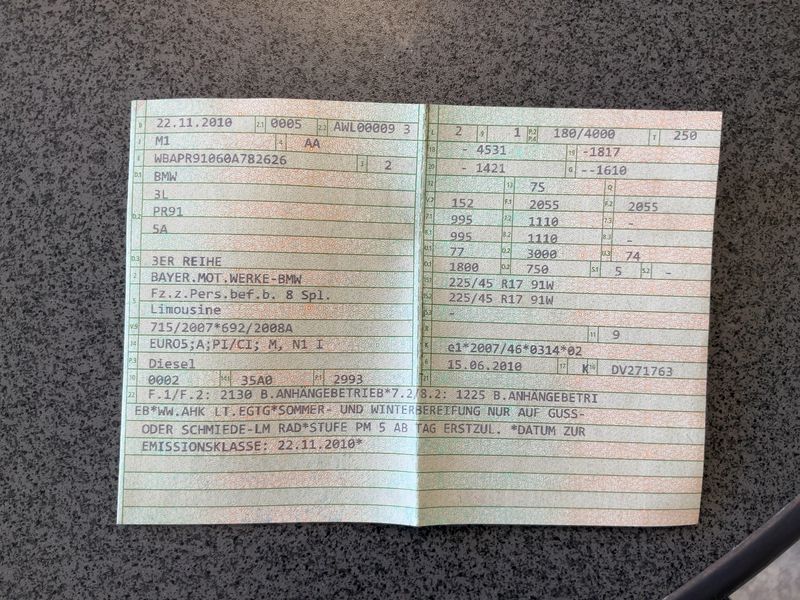 B 22.11.2010 2.1 0005 2.2 AWL00009 3
J M1 4 AA
E WBAPR91060A782626 3 2
D.1 BMW
3L
D.2 PR91
5A
D.3 3ER REIHE
2 BAYER.MOT.WERKE-BMW
5 Fz.z.Pers.bef.b. 8 Spl.
Limousine
V.9 715/2007*692/2008A
14 EURO5;A;PI/CI; M, N1 I
P.3 Diesel
10 0002 14.1 35A0 P.1 2993
L 2 9 1 P.2 P.4 180/4000 T 250
18 - 4531 19 -1817
20 - 1421 G --1610
12 13 75 Q
V.7 152 F.1 2055 F.2 2055
7.1 995 7.2 1110 7.3 -
8.1 995 8.2 1110 8.3 -
U.1 77 U.2 3000 U.3 74
O.1 1800 O.2 750 S.1 5 S.2 -
15.1 225/45 R17 91W
15.2 225/45 R17 91W
-
R 11 9
K e1*2007/46*0314*02
6 15.06.2010 17 K 16 DV271763
21
22 F.1/F.2: 2130 B.ANHÄNGEBETRIEB*7.2/8.2: 1225 B.ANHÄNGEBETRI
EB*WW.AHK LT.EGTG*SOMMER- UND WINTERBEREIFUNG NUR AUF GUSS-
ODER SCHMIEDE-LM RAD*STUFE PM 5 AB TAG ERSTZUL. *DATUM ZUR
EMISSIONSKLASSE: 22.11.2010*